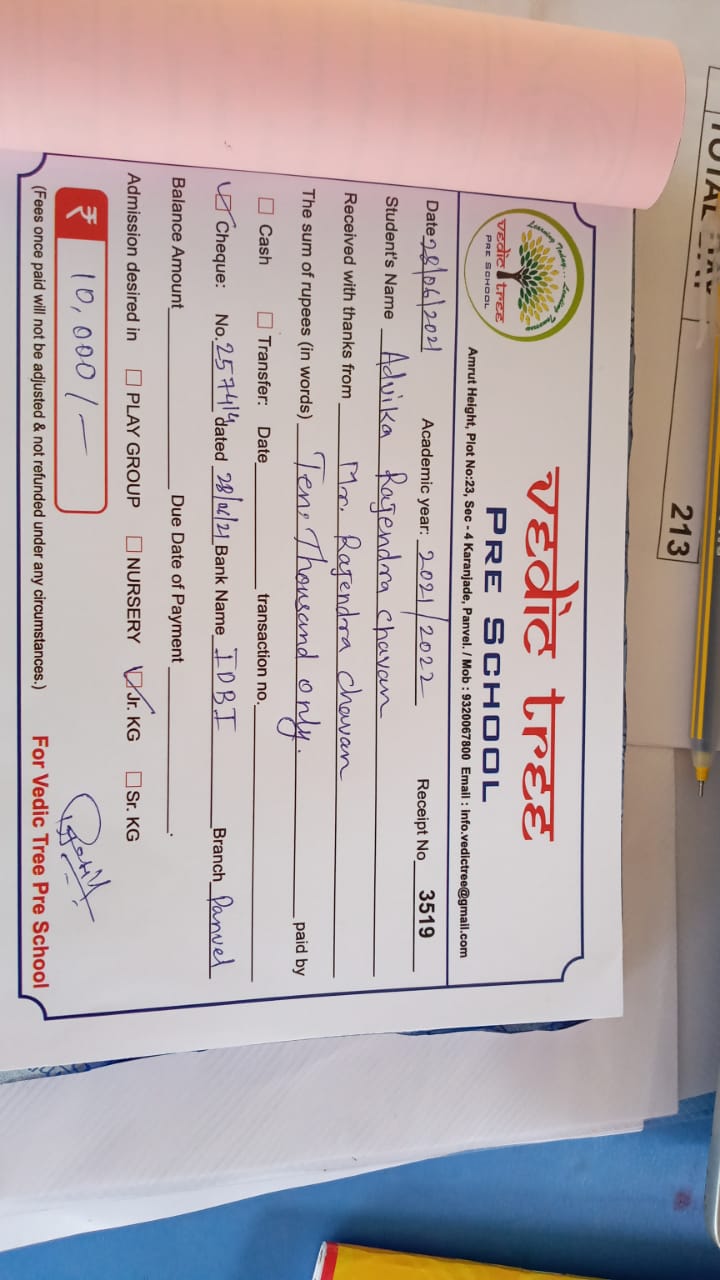 TOTAL
213
Learning Today... Leading Tomorrow
vedic tree
PRE SCHOOL
vedic tree
PRE SCHOOL
Amrut Height, Plot No:23, Sec - 4 Karanjade, Panvel. / Mob : 9320067800 Email : info.vedictree@gmail.com
Date 28/06/2021 Academic year: 2021/2022 Receipt No 3519
Student's Name Advika Rajendra Chavan
Received with thanks from Mr. Rajendra Chavan
The sum of rupees (in words) Ten Thousand only. paid by
Cash Transfer: Date transaction no.
Cheque: No. 257414 dated Bank Name IDBI Branch Panvel
Balance Amount Due Date of Payment .
Admission desired in PLAY GROUP NURSERY Jr. KG Sr. KG
₹ 10,000/-
(Fees once paid will not be adjusted & not refunded under any circumstances.) For Vedic Tree Pre School